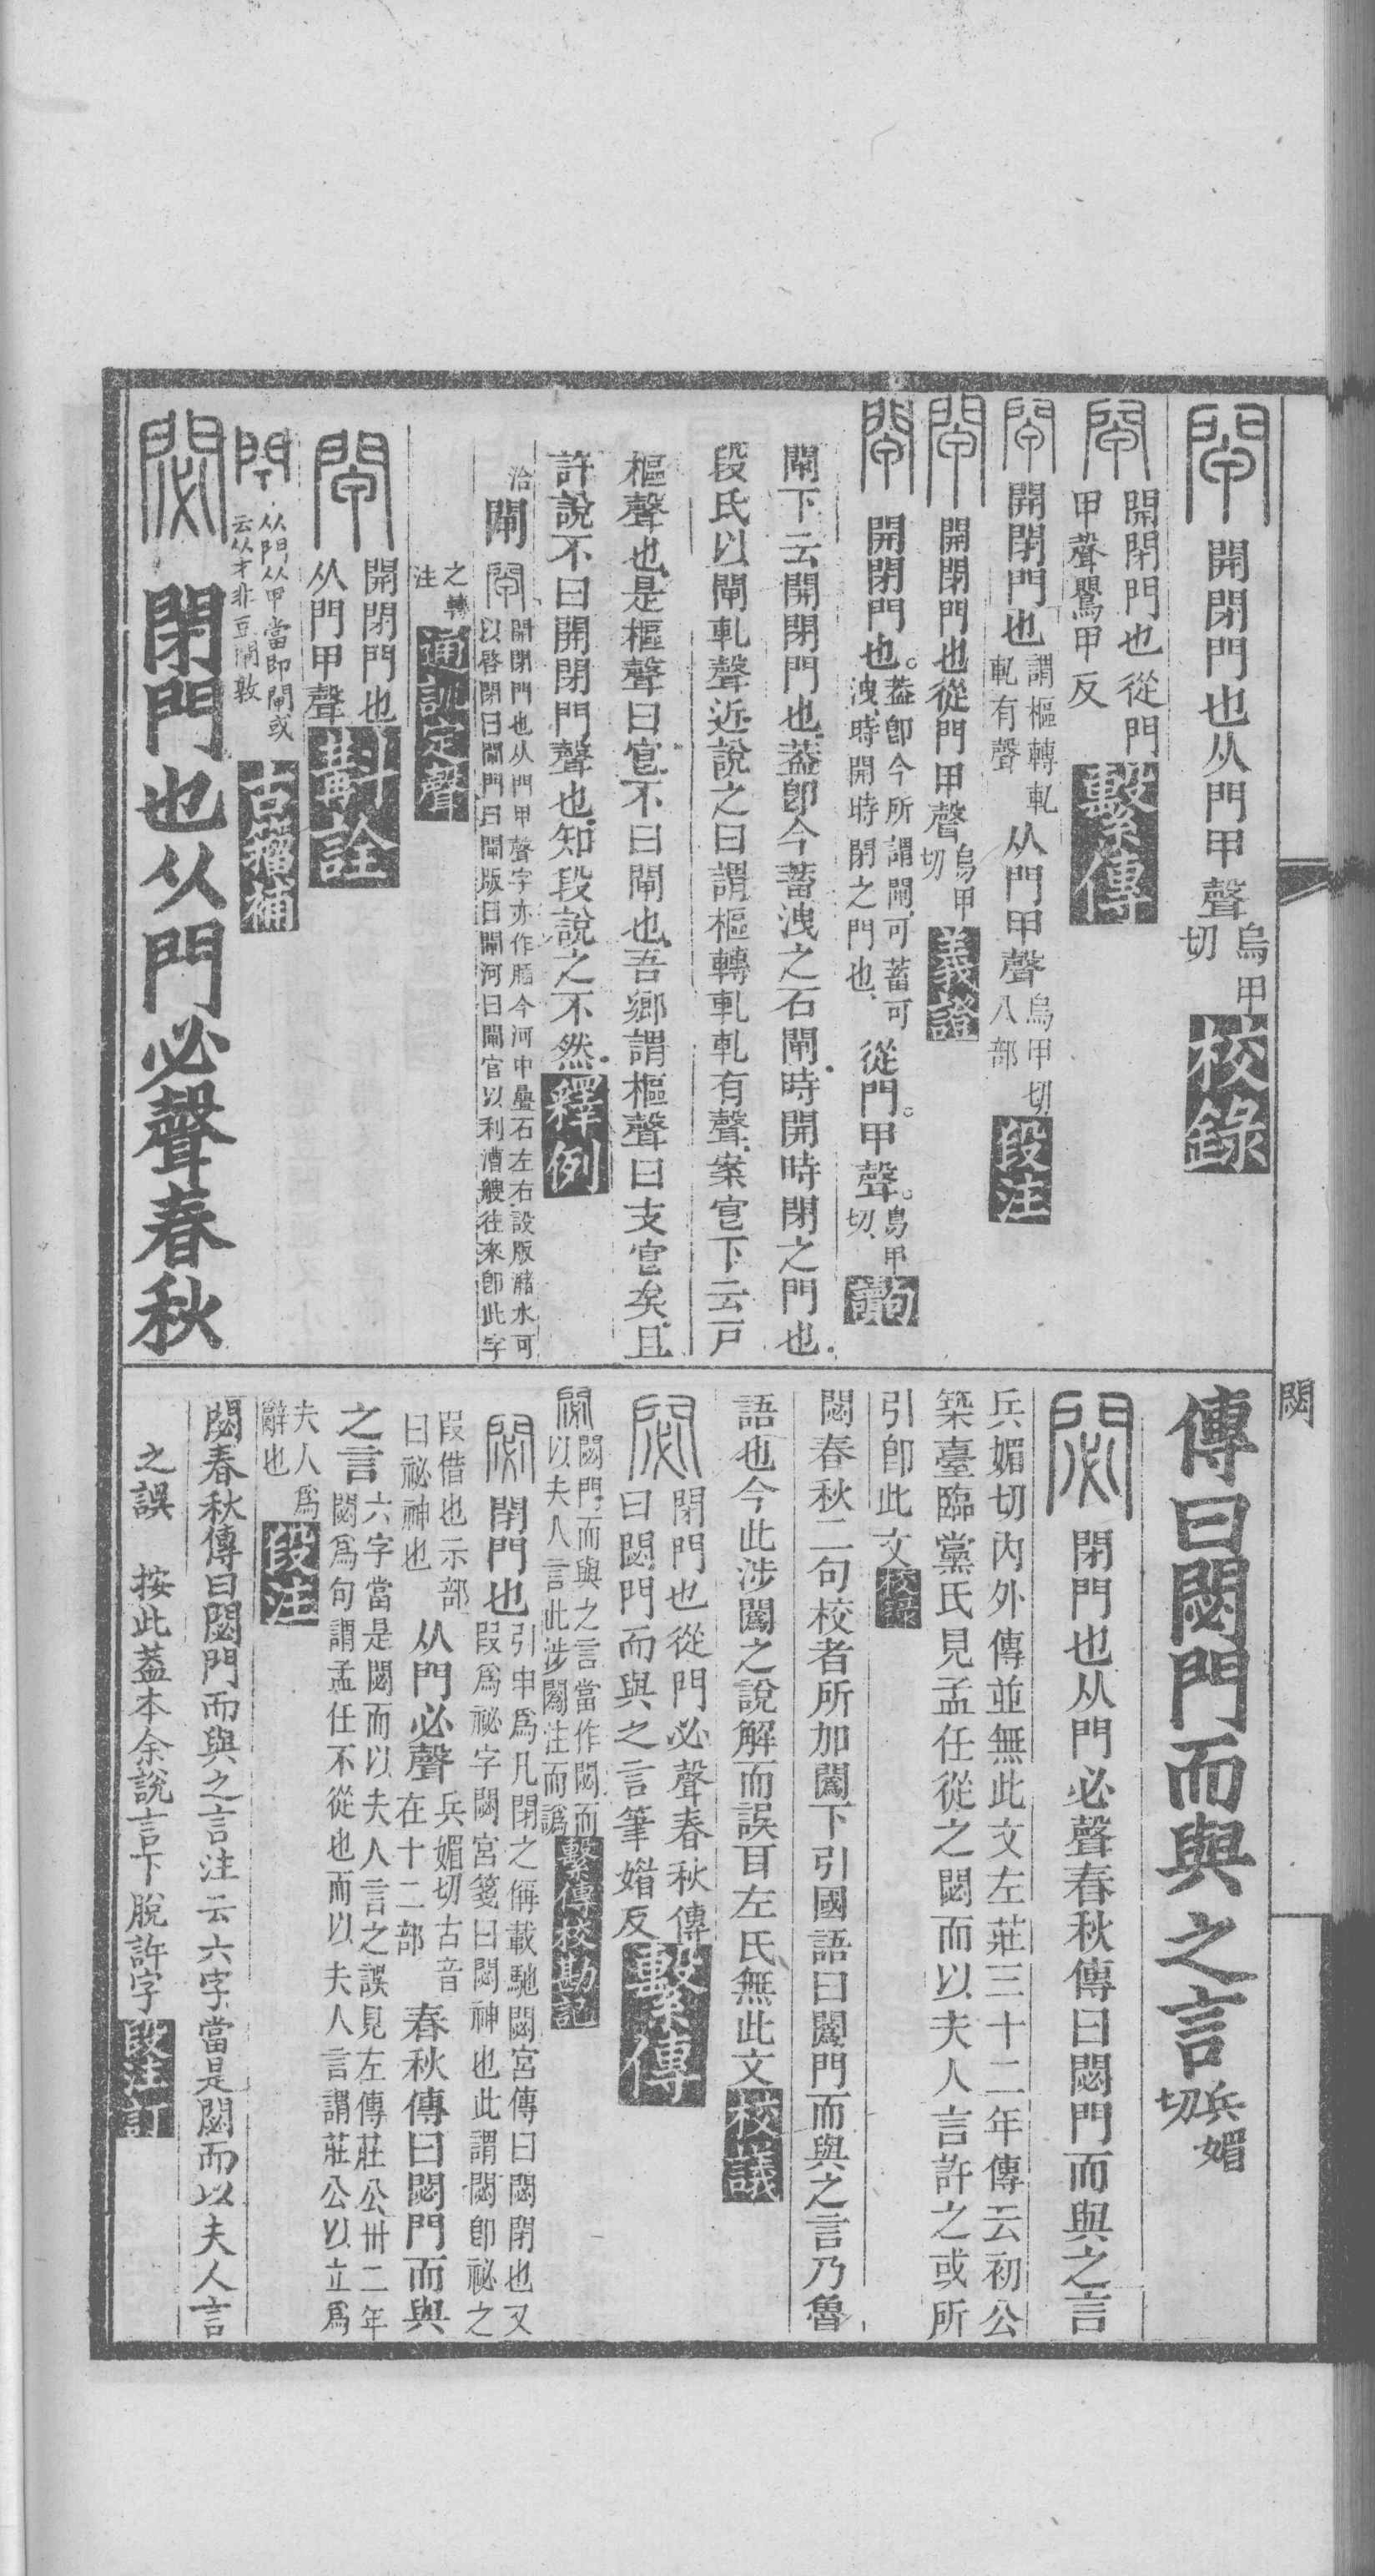 開閉門也从門甲聲烏甲切校錄
開閉門也從門甲聲鸎甲反繫傳
開閉門也謂樞轉軋軋有聲从門甲聲烏甲切八部段注
開閉門也從門甲聲烏甲切義證
開閉門也。葢卽今所謂閘可蓄可洩、時開時閉之門也、從門。甲聲。烏甲切、句讀
閘下云開閉門也葢卽今蓄洩之石閘時開時閉之門也
段氏以閘軋聲近說之曰謂樞轉軋軋有聲案㦿下云戸
樞聲也是樞聲曰㦿不曰閘也吾鄉謂樞聲曰支㦿矣且
許說不曰開閉門聲也知段說之不然釋例
洽閘開閉門也从門甲聲字亦作牐今河中壘石左右設版瀦水可
以啓閉曰閘門曰閘版曰閘河曰閘官以利漕艘往來卽此字
之轉注通訓定聲
開閉門也从門甲聲斠詮
从門从甲當卽閘或云从才非亙閘敦古籀補
閟閉門也从門必聲春秋
閟
傳曰閟門而與之言兵媚切
閉門也从門必聲春秋傳曰閟門而與之言
兵媚切內外傳並無此文左莊三十二年傳云初公
築臺臨黨氏見孟任從之閟而以夫人言許之或所
引卽此文校錄
閟春秋二句校者所加闖下引國語曰闖門而與之言乃魯
語也今此涉闖之說解而誤耳左氏無此文校議
閉門也從門必聲春秋傳曰閟門而與之言筆媘反繫傳
閟門而與之言當作閟而以夫人言此涉闖注而譌繫傳校勘記
閉門也引申爲凡閉之偁載馳閟宮傳曰閟閉也又
叚爲祕字閟宮箋曰閟神也此謂閟卽祕之
叚借也示部曰祕神也从門必聲兵媚切古音在十二部春秋傳曰閟門而與
之言六字當是閟而以夫人言之誤見左傳莊公卅二年
閟爲句謂孟任不從也而以夫人言謂莊公以立爲
夫人爲辭也段注
閟春秋傳曰閟門而與之言注云六字當是閟而以夫人言
之誤　按此葢本余說言下脫許字段注訂